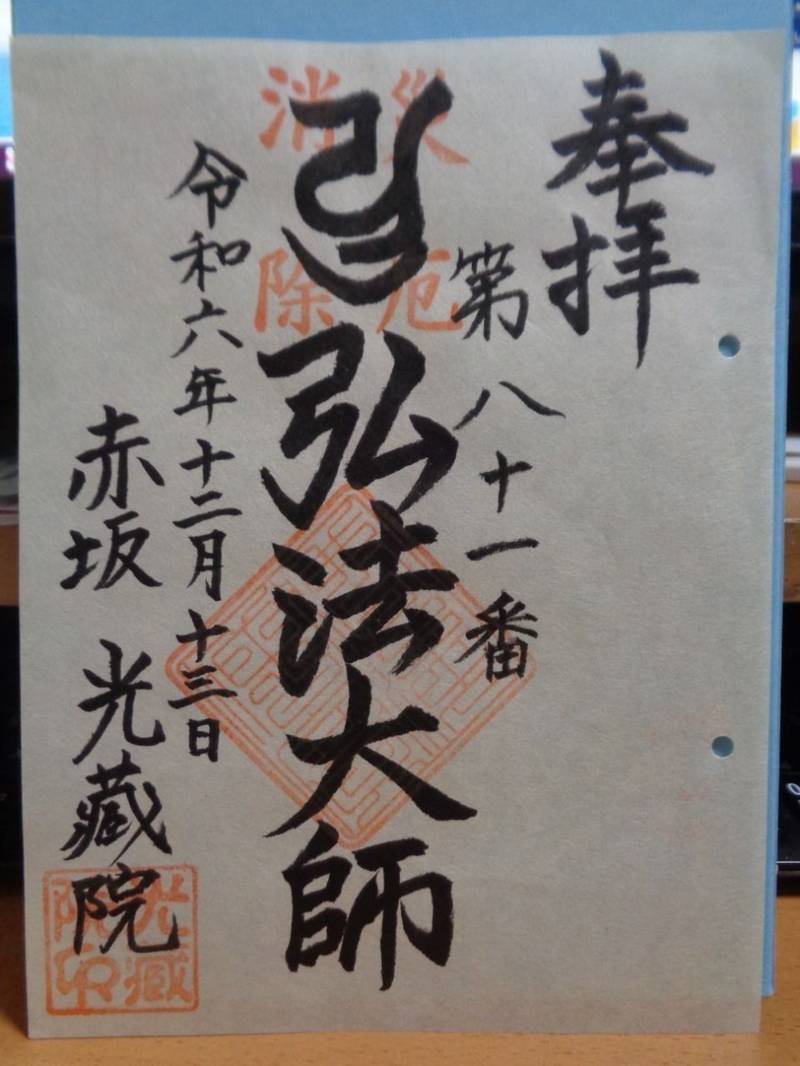 奉拝
第八十一番
災厄
消除
弘法大師
令和六年十二月十三日
赤坂 光蔵院
光蔵
院印